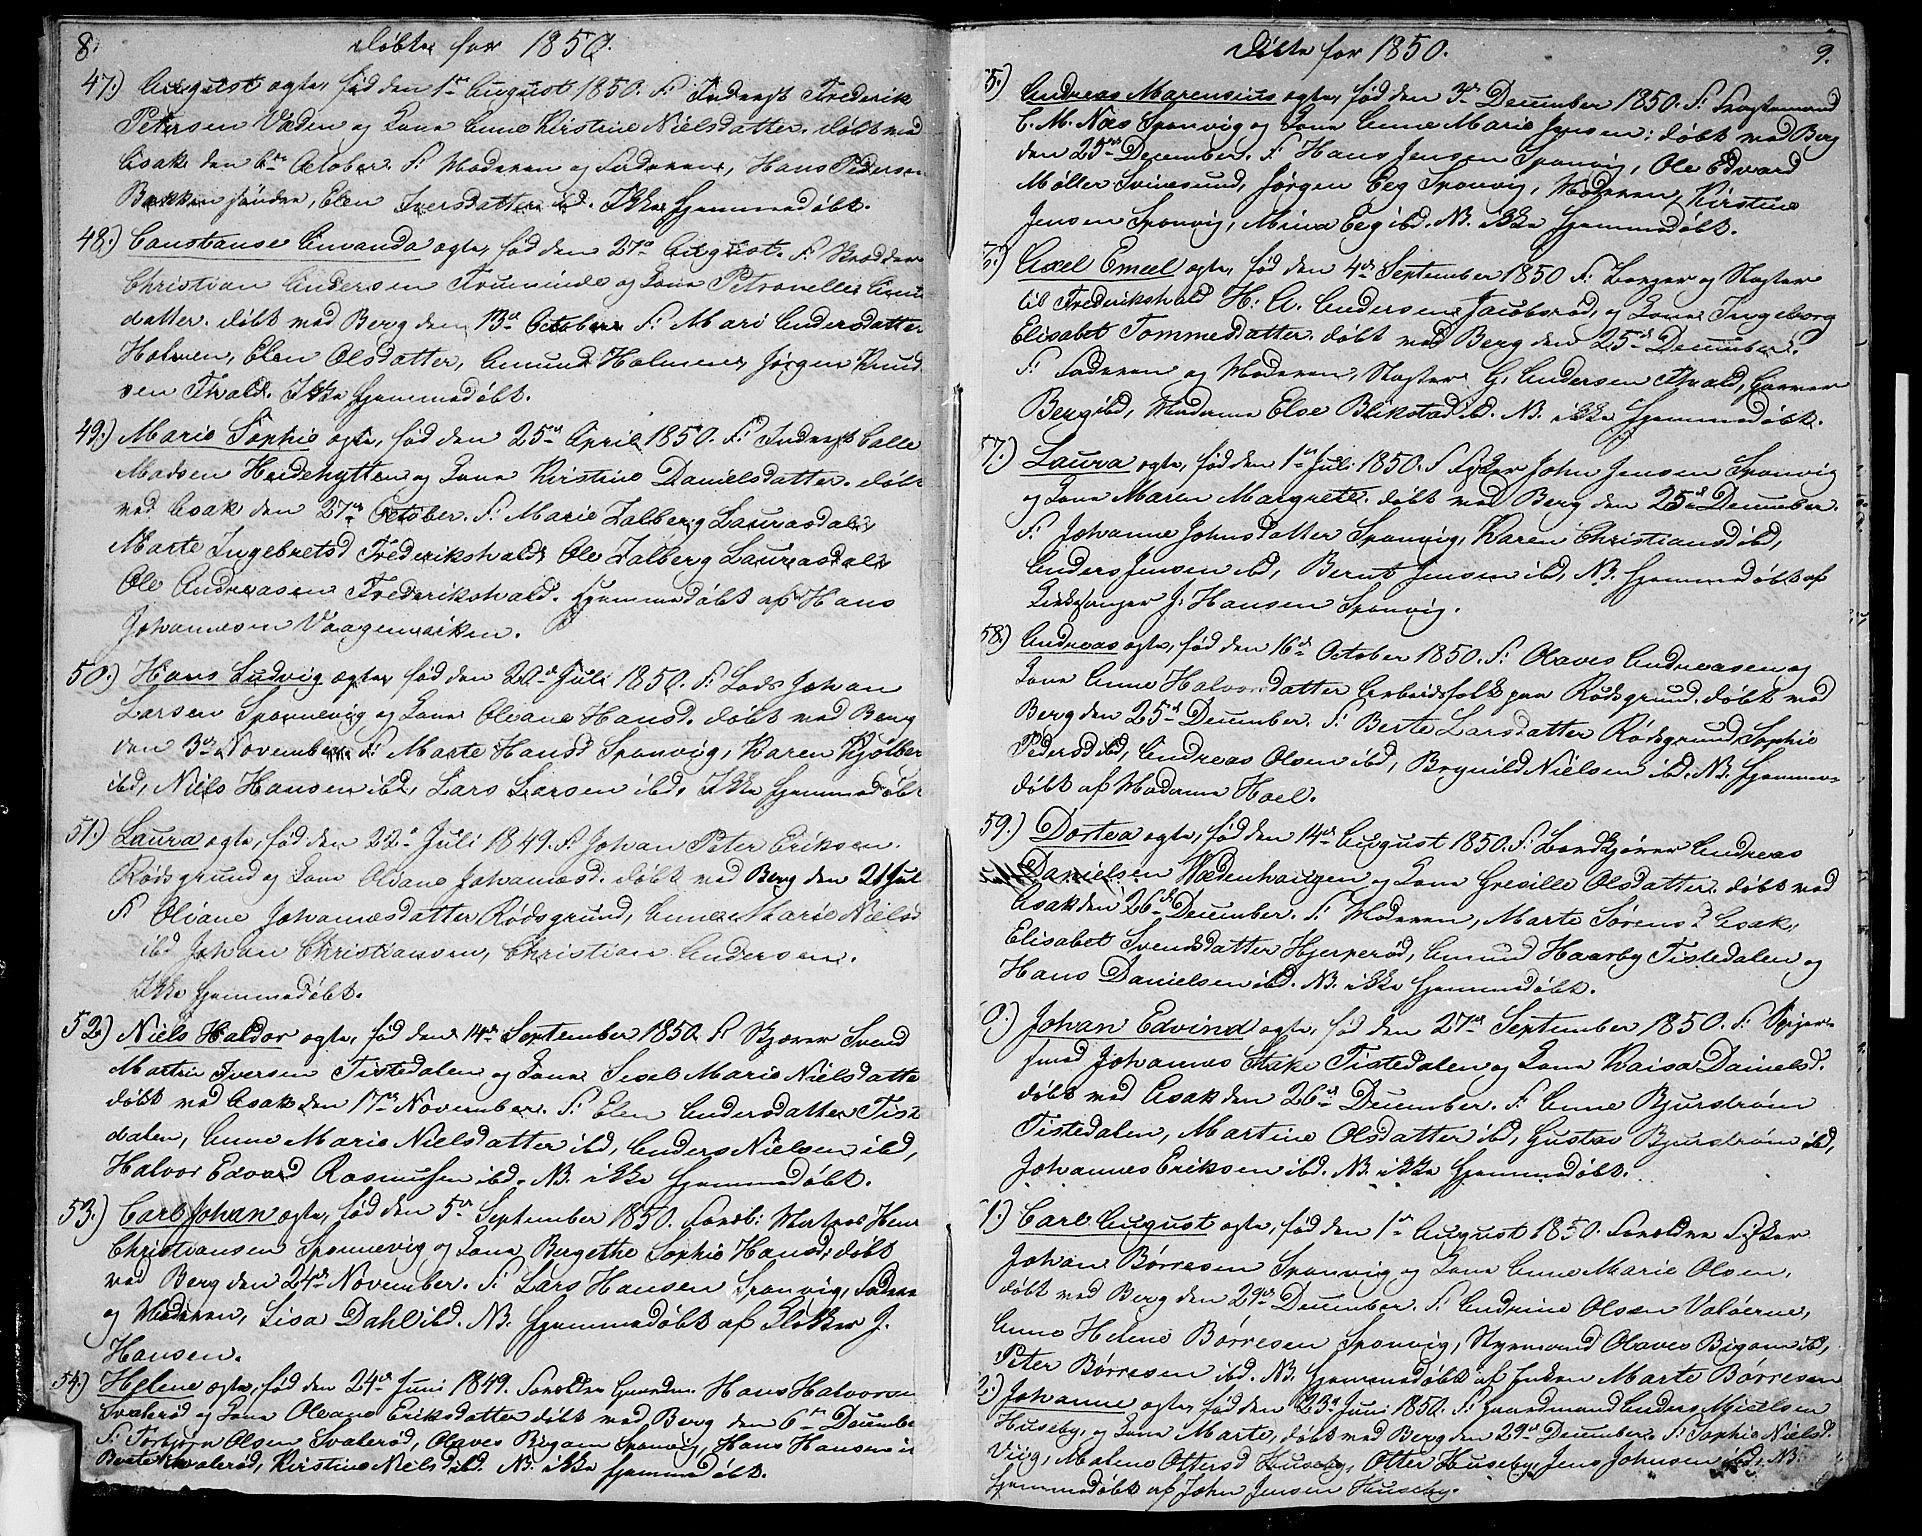 8.
Døbte for 1850.
47.) August ægte, fød den 1ste August 1850. F: Inderst Frederik
Petersen Væden og Kone Anne Kirstine Nielsdatter. døbt ved
Asak den 6te October. F: Moderen og Faderen, Hans Pedersen
Bakken søndre, Elen Iversdatter ibd. Ikke hjemmedøbt.
48.) Constanse Amanda ægte, fød den 27de August. F:
Christian Andersen og Kone Petronelle Amun
datter. døbt ved Berg den 13de October. F: Mari Andersdatter
Holmen, Elen Olsdatter, Amund Holmen, Jørgen Knud
sen Fhald. Ikke hjemmedøbt.
49.) Marie Sophie ægte, fød den 25de April 1850. F: Inderst Calle
Madsen Heidehytten og Kone Kirstine Danielsdatter. døbt
ved Asak den 27de October. F: Marie Falberg Laurasdal
Marte Ingebretsd Frederikshald, Ole Falberg Laurasdal
Ole Andreasen Frederikshald. Hjemmedøbt af Hans
Johannesen Vaagenviken.
50.) Hans Ludvig ægte, fød den 20de Juli 1850. F: Lods Johan
Larsen Sponnevig og Kone Oleane Hansd. døbt ved Berg
den 3de November. F: Marte Hansd Sponvig, Karen Kjølber
ibd, Niels Hansen ibd, Lars Larsen ibd, Ikke hjemmedøbt
51.) Laura ægte, fød den 22de Juli 1849. F: Johan Peter Eriksen
Rødsgrund og Kone Oliane Johannesd. døbt ved Berg den 21 Jul
F: Oliane Johannesdatter Rødsgrund, Anne Marie Nielsd
ibd Johan Christiansen, Christian Andersen.
Ikke hjemmedøbt.
52.) Niels Haldor ægte, fød den 14de September 1850. F: Kjører Svend
Martin Iversen Tistedalen og Kone Sisel Marie Nielsdatte
døbt ved Asak den 17de November. F: Elen Andersdatter Tist
dalen, Anne Marie Nielsdatter ibd, Anders Nielsen ibd,
Halvor Edvard Rasmussen ibd. NB. ikke hjemmedøbt.
53.) Carl Johan ægte, fød den 5te September 1850. Foræl: Matros Hen
Christiansen Sponnevig og Kone Bergethe Sophie Hansd, døbt
ved Berg den 24de November. F: Lars Hansen Sponvig, Faderen
og Moderen, Lisa Dahl ibd. NB. hjemmedøbt af Klokker J.
Hansen.
54.) Helene ægte, fød den 24de Juni 1849. Forældre Gaardm. Hans Halvorsen
Svalerød og Kone Oleane Eriksdatter døbt ved Berg den 6te Decembe
F: Torbjørn Olsen Svalerød, Olaves Bigom Sponvig, Hans Hansen i
Berte Svalerød, Kirstine Nielsd ibd. NB. ikke hjemmedøbt.
Døbte for 1850.
9.
5.) Andreas Marensius ægte, fød den 3de December 1850. F: Fragtemand
C. M. Næs Sponvig og Kone Anne Marie Jensen; døbt ved Berg
den 25de December. F: Hans Jensen Sponvig, Ole Edvard
Møller Svinesund, Jørgen Eeg Sponvig, Moderen, Kirstine
Jensen Sponvig, Mina Eeg ibd. NB. ikke hjemmedøbt.
6.) Axel Emeel ægte, fød den 4de September 1850 F: Borger og Slagter
til Frederikshald H: A. Andersen Jacobsrød, og Kone Ingeborg
Elisabet Tommesdatter. døbt ved Berg den 25de December.
F: Faderen og Moderen, Slagter G. Andersen Fhald, Garver
Berg ibd, Madame Else Blikstad ibd. NB. ikke hjemmedøbt.
7.) Laura ægte, fød den 1ste Juli 1850. F: Fisker John Jensen Sponvig
og Kone Maren Margrete. døbt ved Berg den 25de December.
F: Johanne Johnsdatter Sponvig, Karen Christiansd ibd,
Anders Jensen ibd, Bernt Jensen ibd, NB. hjemmedøbt af
Kirkesanger J: Hansen Sponvig.
58.) Andreas ægte, fød den 16de October 1850. F: Olaves Andreasen og
Kone Anne Halvorsdatter Arbeidsfolk paa Rødsgrund. døbt ved
Berg den 25de December. F: Berte Larsdatter Rødsgrund, Sophie
Pedersd ibd, Andreas Olsen ibd, Brynild Nielsen ibd. NB. hjemme-
døbt af Madame Hoel.
59.) Dortea ægte, fød den 14de August 1850. F: Bordkjører Andreas
Danielsen Wedenhaugen og Kone Gresille Olsdatter. døbt ved
Asak den 26de December. F: Moderen, Marte Sørensd Asak,
Elisabet Svendsdatter Hjerperød, Amund Haarby Tistedalen og
Hans Danielsen ibd. NB. ikke hjemmedøbt.
0.) Johan Edvind ægte, fød den 27de September 1850. F: Spiger-
smed Johannes Stake Tistedalen og Kone Kaisa Danielsd.
døbt ved Asak den 26de December. F: Anne Bjurstrøm
Tistedalen, Martine Olsdatter ibd, Gustav Bjurstrøm ibd,
Johannes Eriksen ibd. NB. ikke hjemmedøbt.
1.) Carl August ægte, fød den 1ste August 1850. Forældre Fisker
Johan Børresen Sponvig og Kone Anne Marie Olsen,
døbt ved Berg den 29de December. F: Andrine Olsen Valøerne,
Anne Helene Børresen Sponvig, Styrmand Olaves Bigom ibd,
Peter Børresen ibd. NB. hjemmedøbt af Enken Marte Børresen
2.) Johanne ægte, fød den 23de Juni 1850. F: Gaardmand Anders Nielsen
Huseby, og Kone Marte, døbt ved Berg den 29de December. F: Sophie Nielsd.
Viig, Malene Ottersd Huseby, Otter Huseby, Jens Johnsen ibd. NB.
hjemmedøbt af John Jensen Huseby.